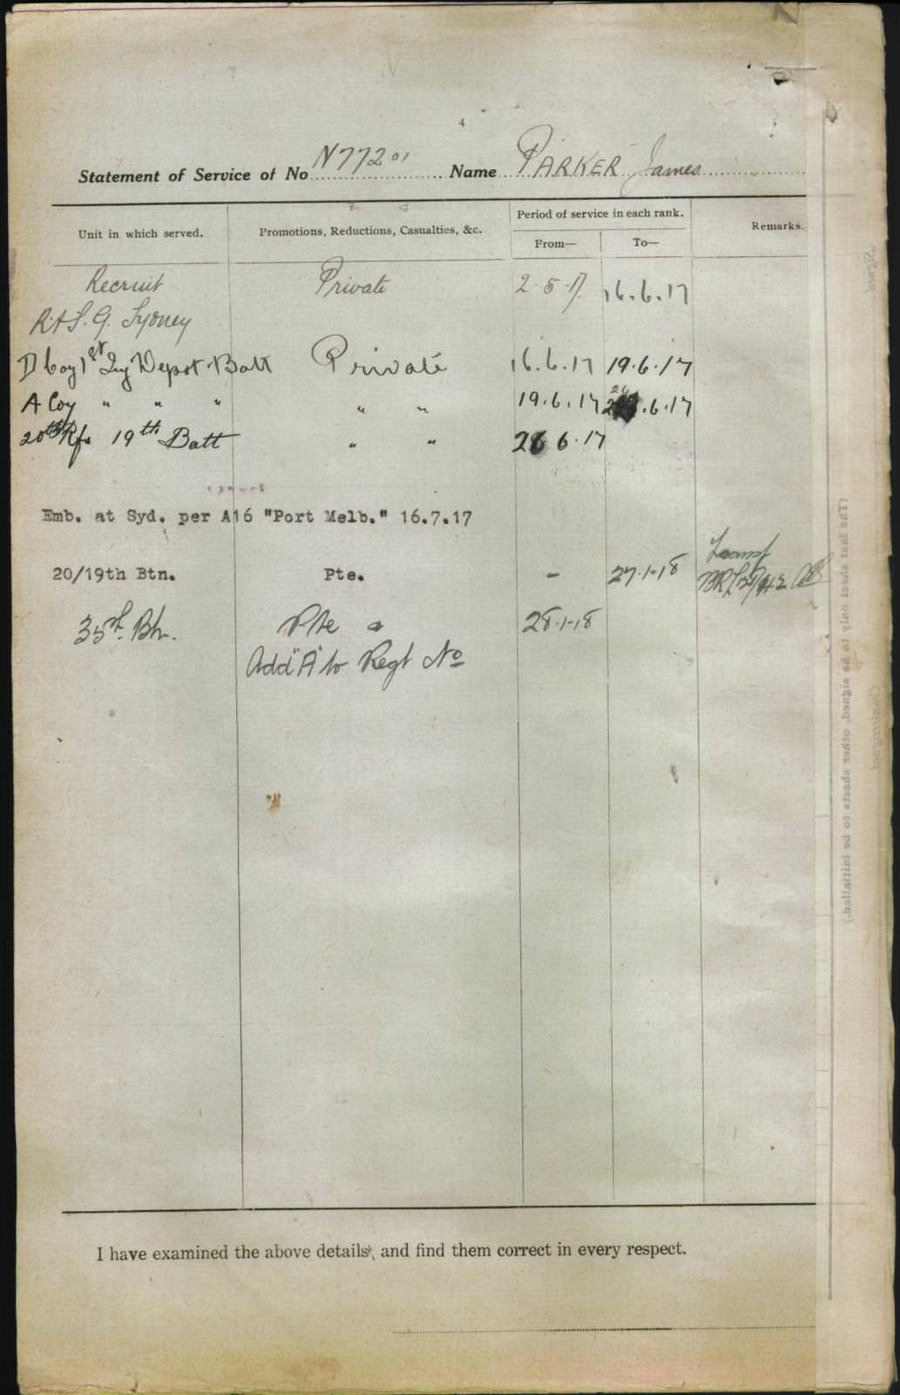 Statement of Service of No N77201 Name PARKER James
Unit in which served. Promotions, Reductions, Casualties, &c. Period of service in each rank. Remarks.
From— To—
Recruit Private 2.5.17 16.6.17
R.A.S.G. Sydney
D Coy 1st Inf Depot Batt Private 16.6.17 19.6.17
A Coy " " " " " 19.6.17 26.6.17
20th Rfs 19th Batt " " 26 6.17
Emb. at Syd. per A16 "Port Melb." 16.7.17
20/19th Btn. Pte. - 27.1.18 Transf
35th Bn. Pte 28.1.18
Add "A" to Regt No
I have examined the above details, and find them correct in every respect.
(The last sheet only to be signed, other sheets to be initialled.)